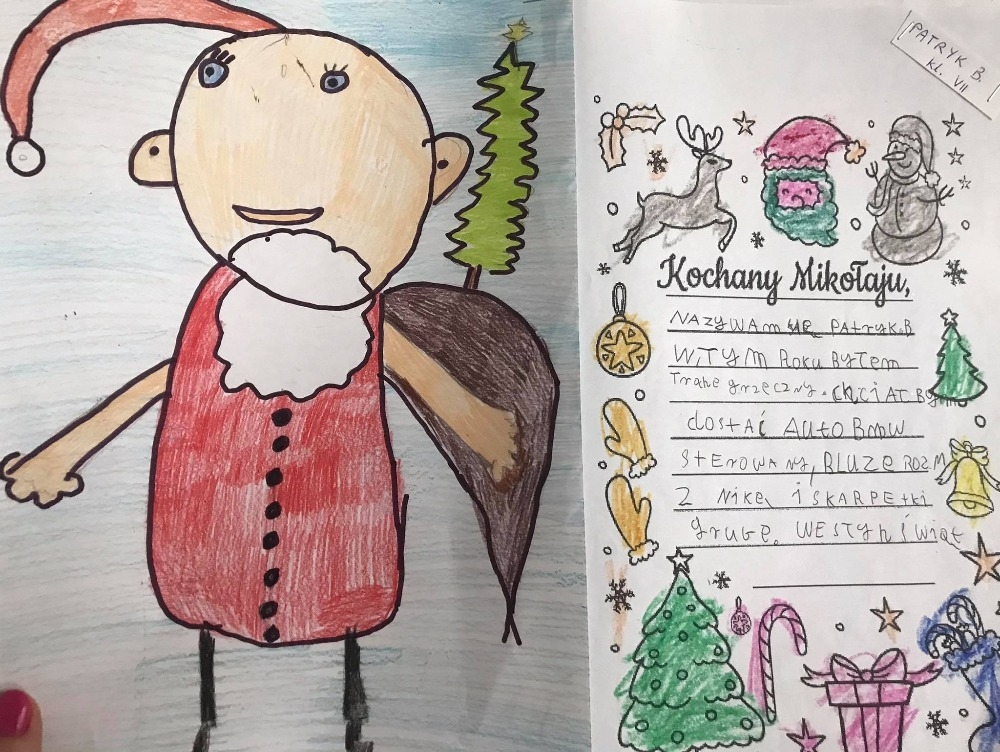 PATRYK B.
KL. VII
Kochany Mikołaju,
NAZYWAM SIĘ PATRYK.B
W TYM ROKU BYŁEM
Trahe grzeczny. CHCIAŁBYM
dostać AUTO BMW
STEROWANY, BLUZE ROZ.M
Z NIKE, i SKARPETKI
grube. WESTYH ŚWIąt